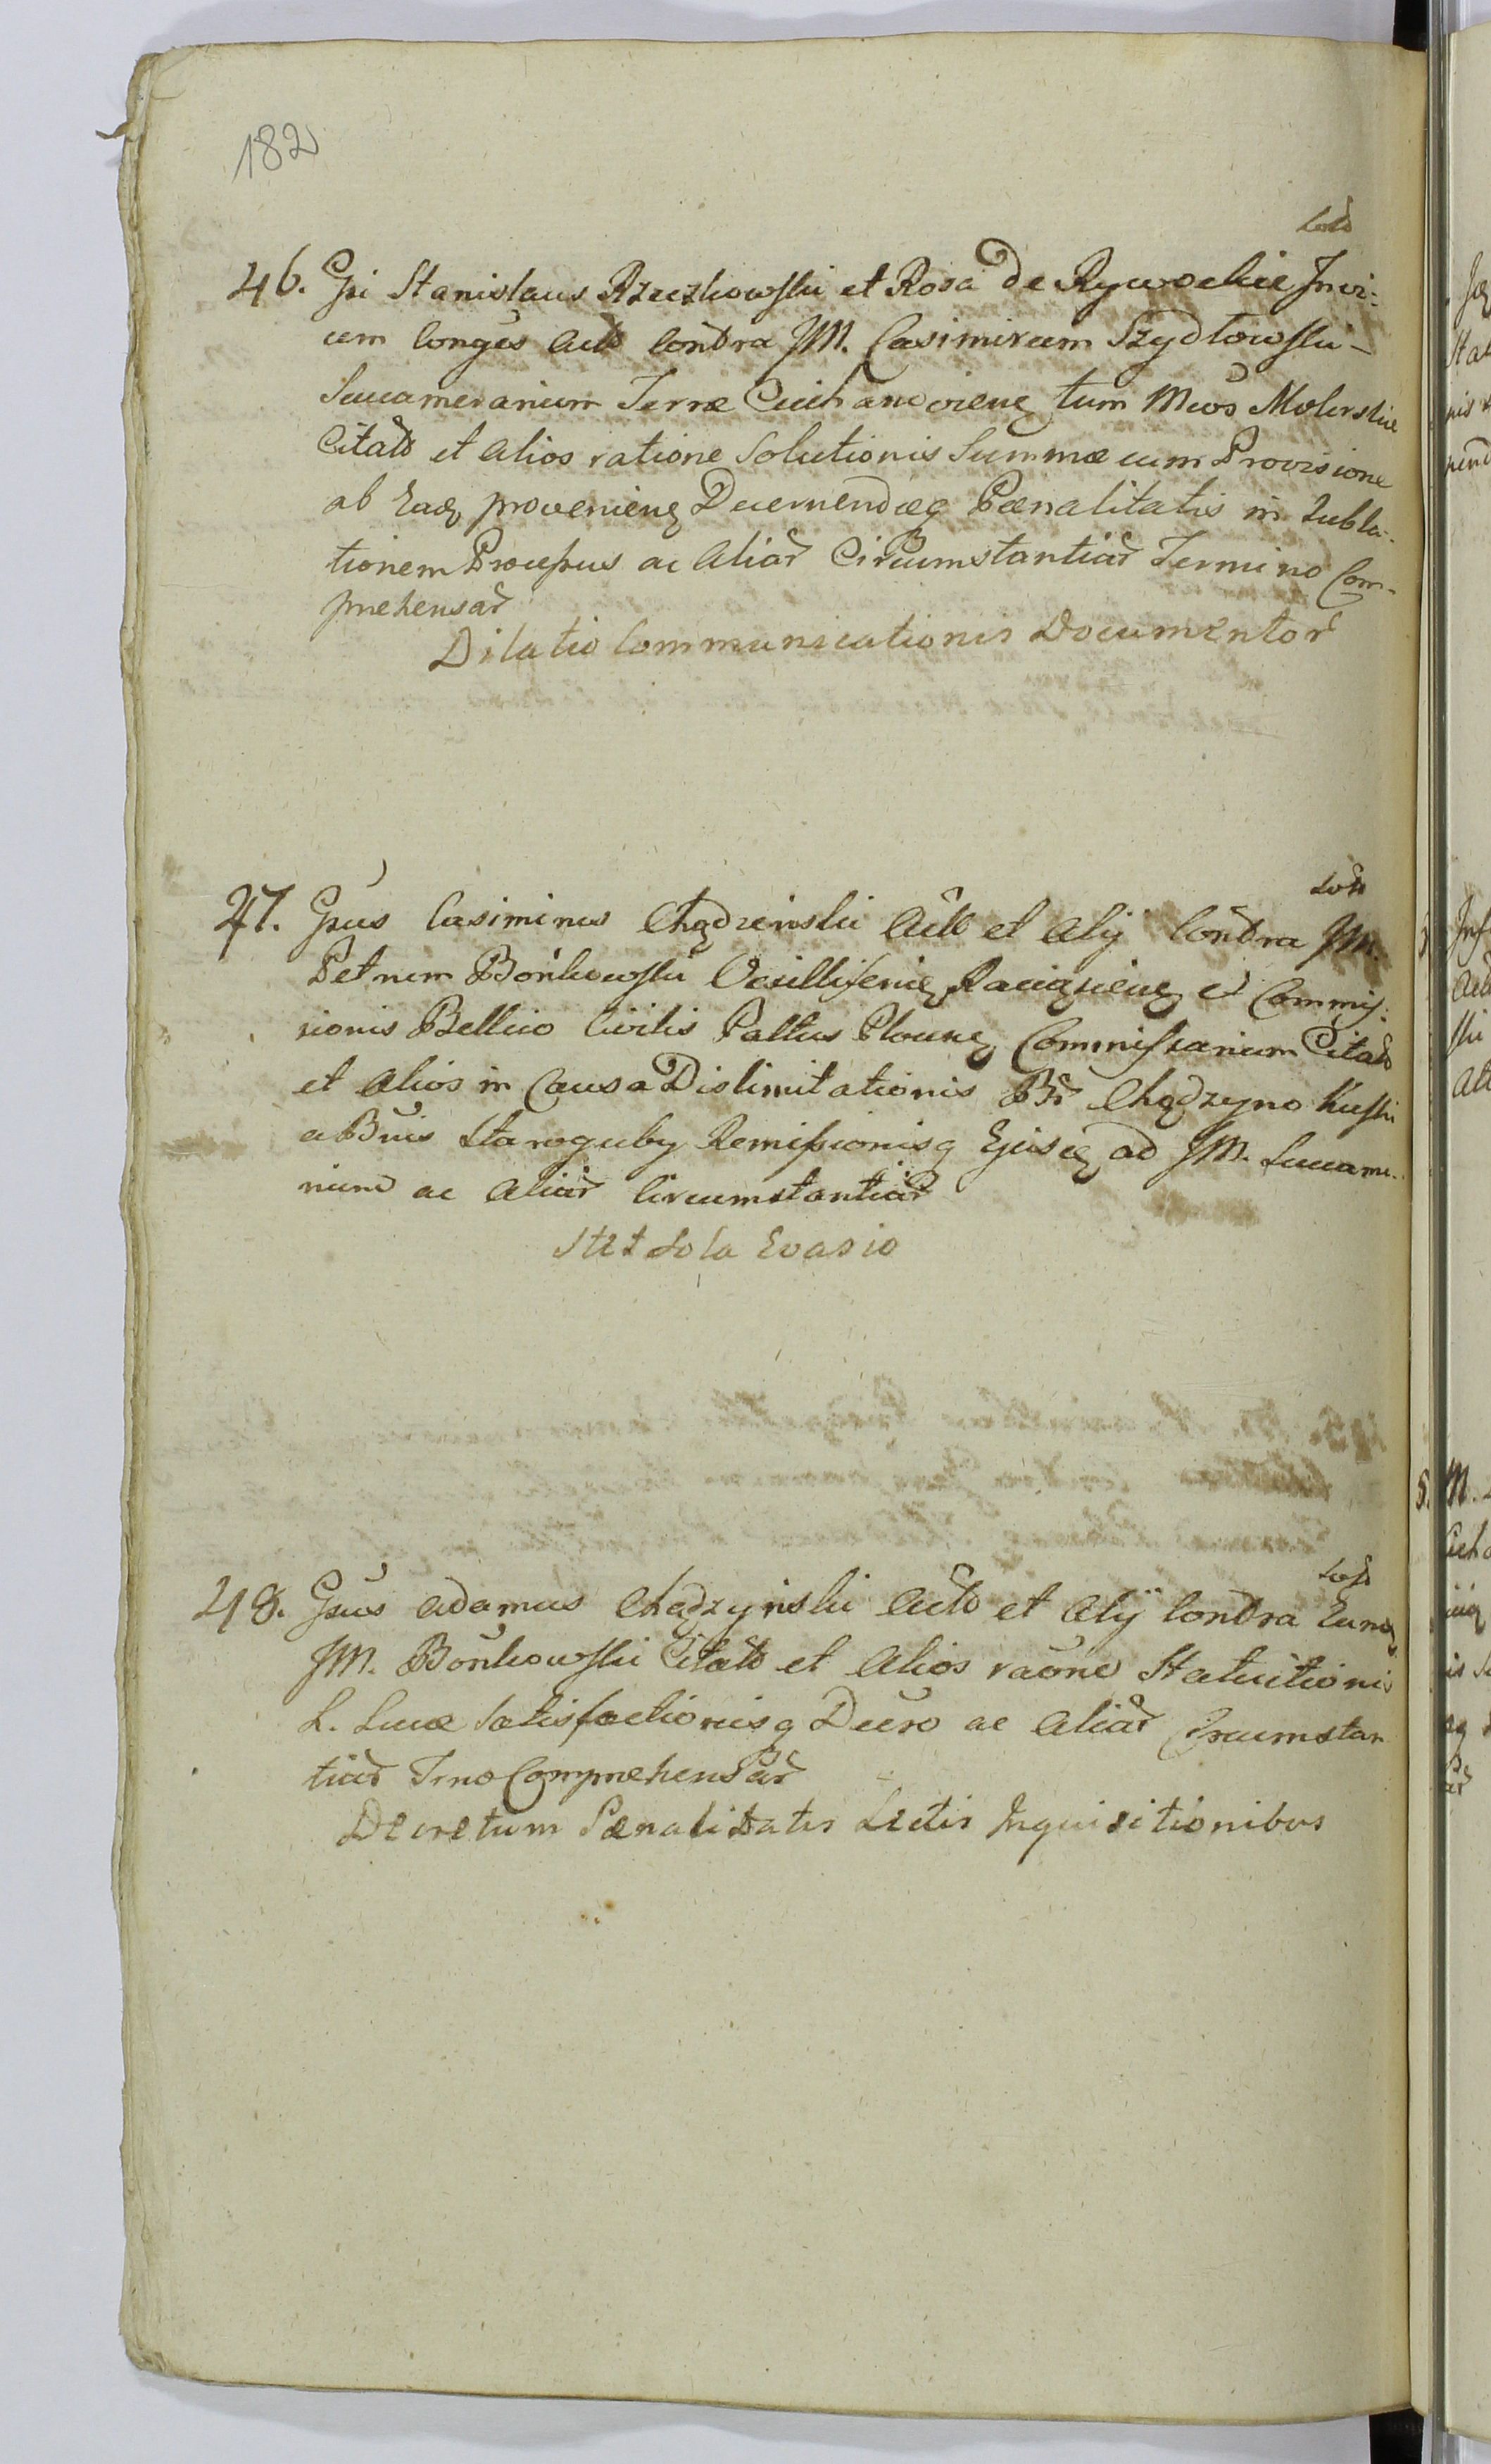 182
46. Gsi Stanislaus Rzeczkowski et Rosa de Rywockie Invi:
cem Conges Actō Contra JM. Casimirum Szydłowski -
Succamerarium Terræ Ciechanoviens tum Mcos Mołerskie
Citatō et Alios ratione Solutionis Summæ cum Provisione
ab Eadq provenienq Decernendæq Pænalitatis in Subla-
tionem Processus ac Aliar Circumstantiar Termino Com-
prehensar
Dilatio Communicationis Documentor
47. Gsus Casimirus Chądzeński Actō et Alij Contra JM.
Petrum Bońkowski Vexilliferūq Raciązienq et Commis:
sionis Bellico Civilis Palttus Plocnq Commissarium Citatō
et Alios in Causa Dislimitationis Br Chądzyno Kuski
a Bnis Staroguby Remissionisq Ejusdq ad JM. Succame..
rium ac Aliar Circumstantiar
Stet Sola Evasio
48. Gsus Adamus Chądzyński Actō et Alij Contra Eundq
JM. Bońkowski Citatō et Alios raōne Statuitionis
L. Lucæ Satisfactionisq Decro ac Aliar Circumstan
tiar Tmo Comprehensar
Decretum Pænalitatis Lectis Inquisitionibus